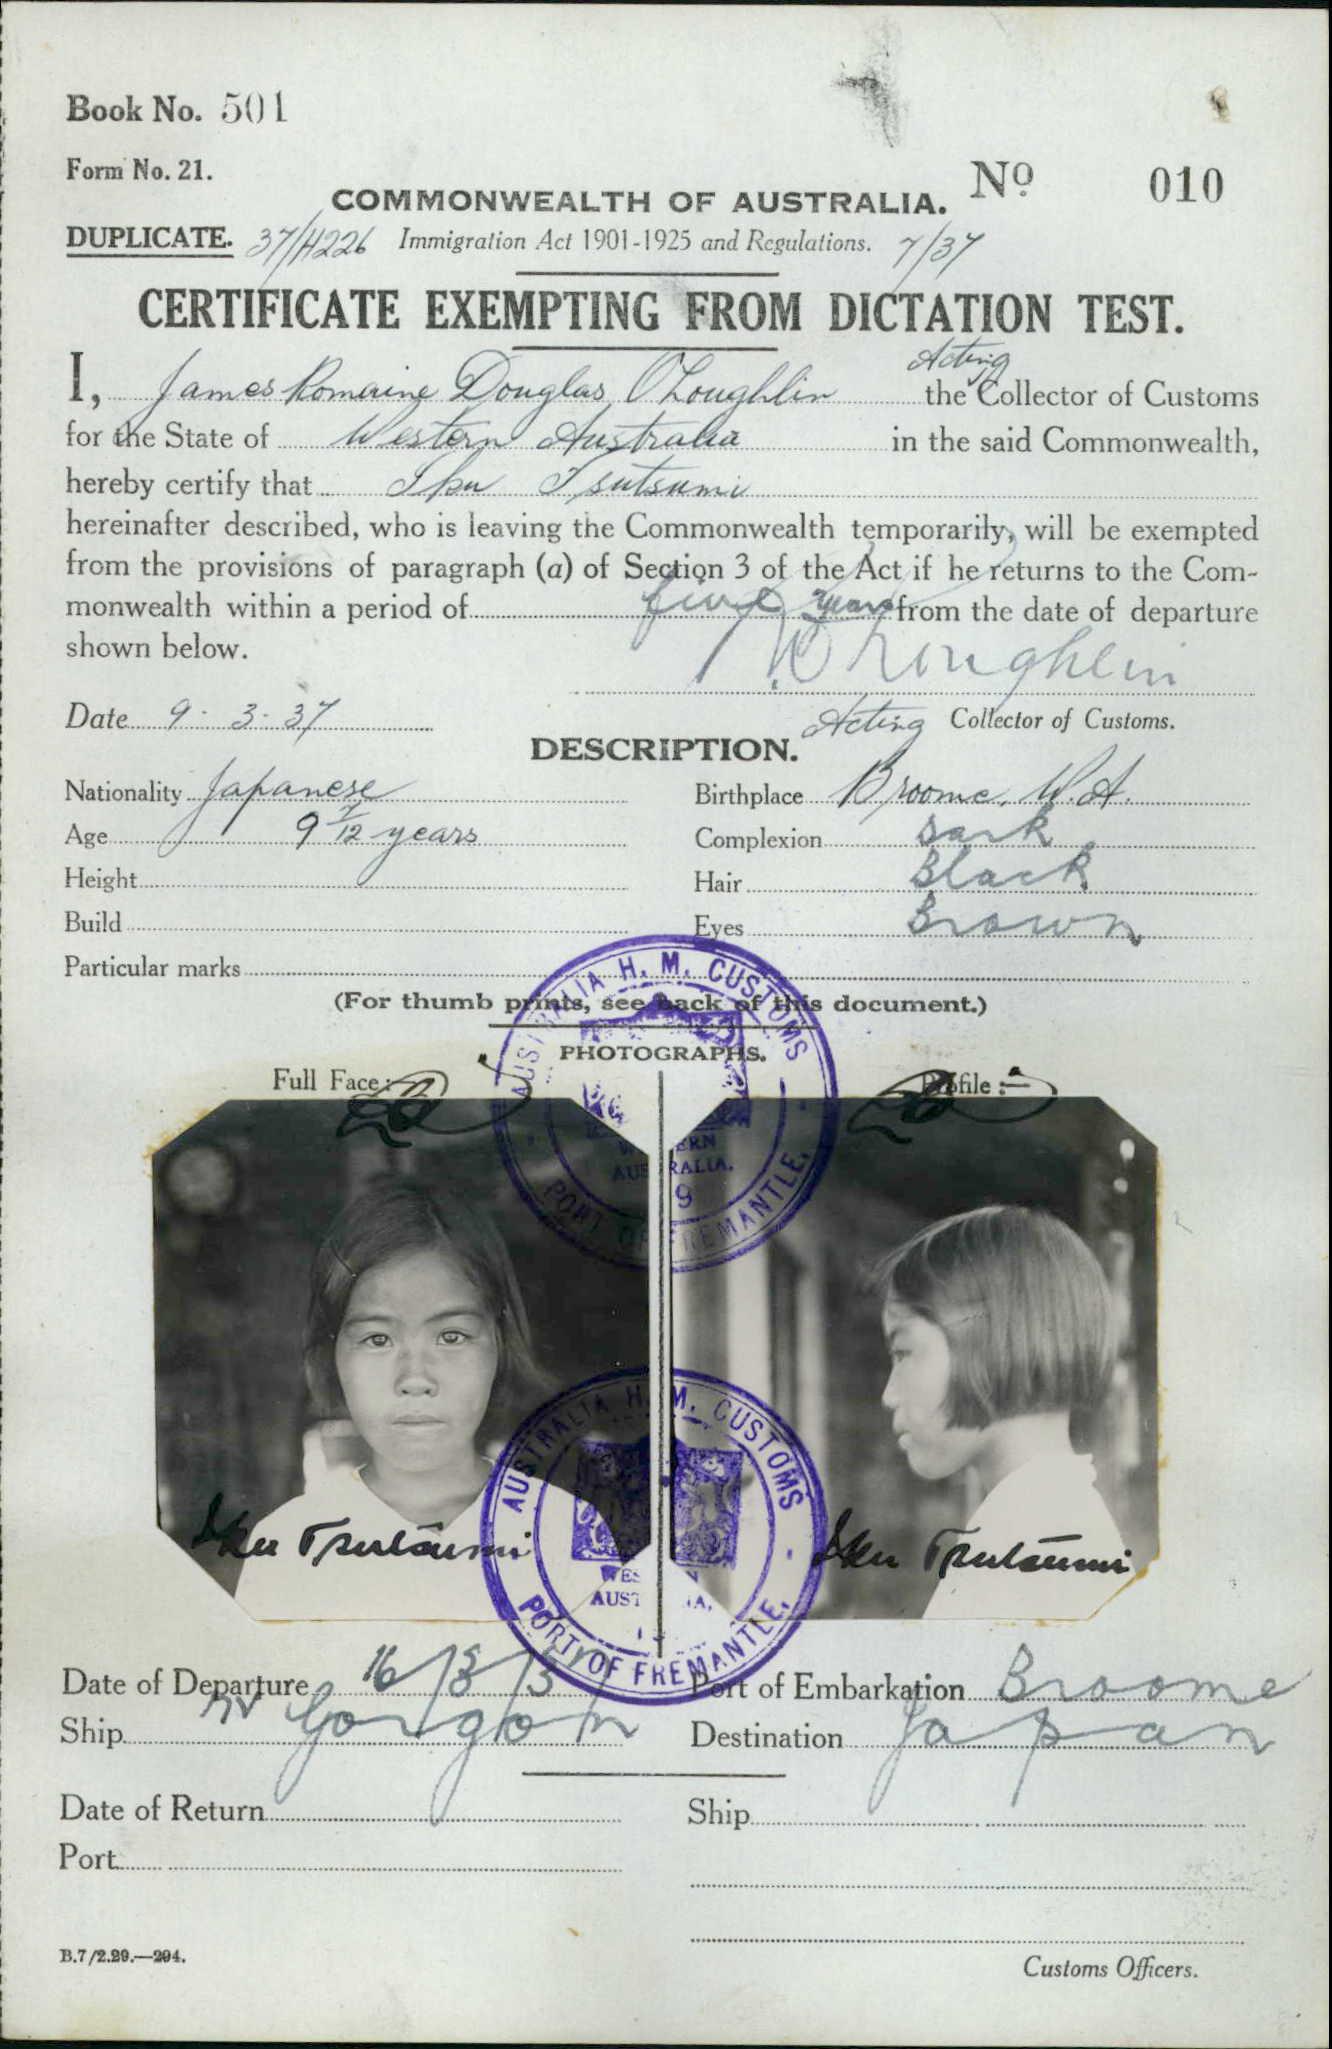 Book No. 501
Form No. 21.
Nº 010
COMMONWEALTH OF AUSTRALIA.
DUPLICATE. 37/H226 Immigration Act 1901-1925 and Regulations. 7/37
CERTIFICATE EXEMPTING FROM DICTATION TEST.
Acting
I, James Romaine Douglas O'Loughlin the Collector of Customs
for the State of Western Australia in the said Commonwealth,
hereby certify that Iku Tsutsumi
hereinafter described, who is leaving the Commonwealth temporarily, will be exempted
from the provisions of paragraph (a) of Section 3 of the Act if he returns to the Com-
monwealth within a period of five years from the date of departure
shown below.
O'Loughlin
Date 9. 3. 37
Acting Collector of Customs.
DESCRIPTION.
Nationality Japanese
Birthplace Broome, W.A.
Age years
Complexion Dark
Height
Hair Black
Build
Eyes Brown
Particular marks
(For thumb prints, see back of this document.)
PHOTOGRAPHS.
Full Face:
Profile:—
AUSTRALIA H. M. CUSTOMS
WESTERN
AUSTRALIA.
9
PORT OF FREMANTLE.
AUSTRALIA H. M. CUSTOMS
WESTERN
AUSTRALIA.
PORT OF FREMANTLE.
Iku Tsutsumi
Iku Tsutsumi
Date of Departure 16/3/37
Port of Embarkation Broome
Ship MV Gorgon
Destination Japan
Date of Return
Ship
Port
B.7/2.29.—294.
Customs Officers.